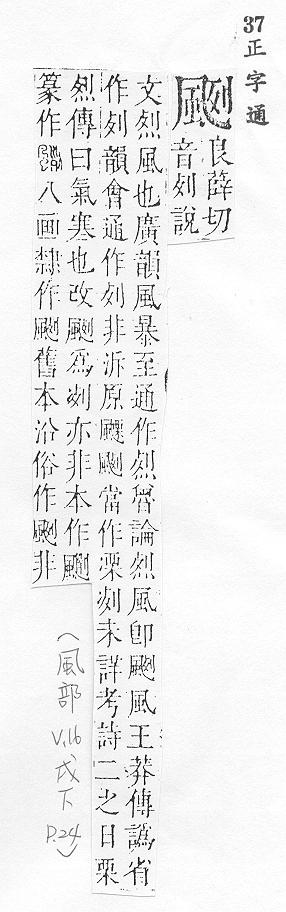 37 正字通
颲
良薛切
音列說
文烈風也廣韻風暴至通作烈魯論烈風卽颲風王莽傳譌省
作列韻會通作列非泝原䬆颲當作溧冽未詳考詩二之日栗
烈傳曰氣寒也改颲爲冽亦非本作颲
篆作八画隸作颲舊本沿俗作颲非
（風部 V.16 戌下 P.24）